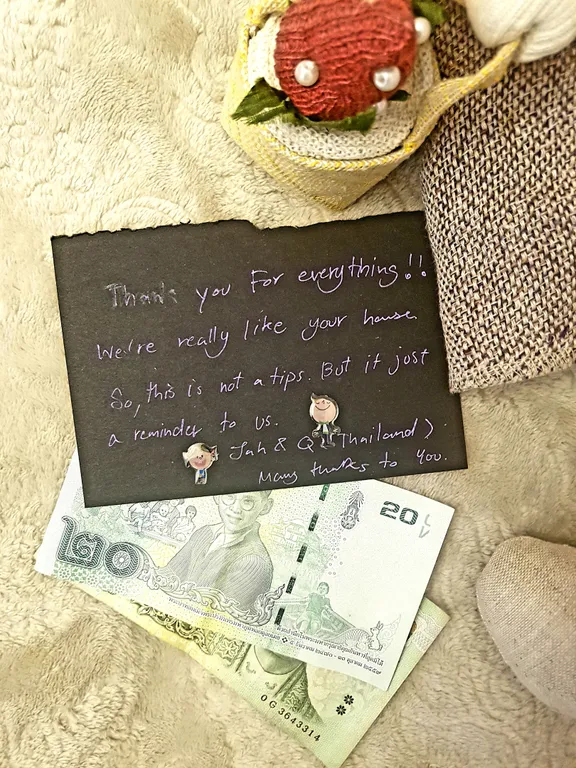 Thank you For everything!!
We're really like your house
So, this is not a tips. But it just
a reminder to us.
Jah & Q (Thailand)
Many thanks to You.
20
๒๐
0G 3643314